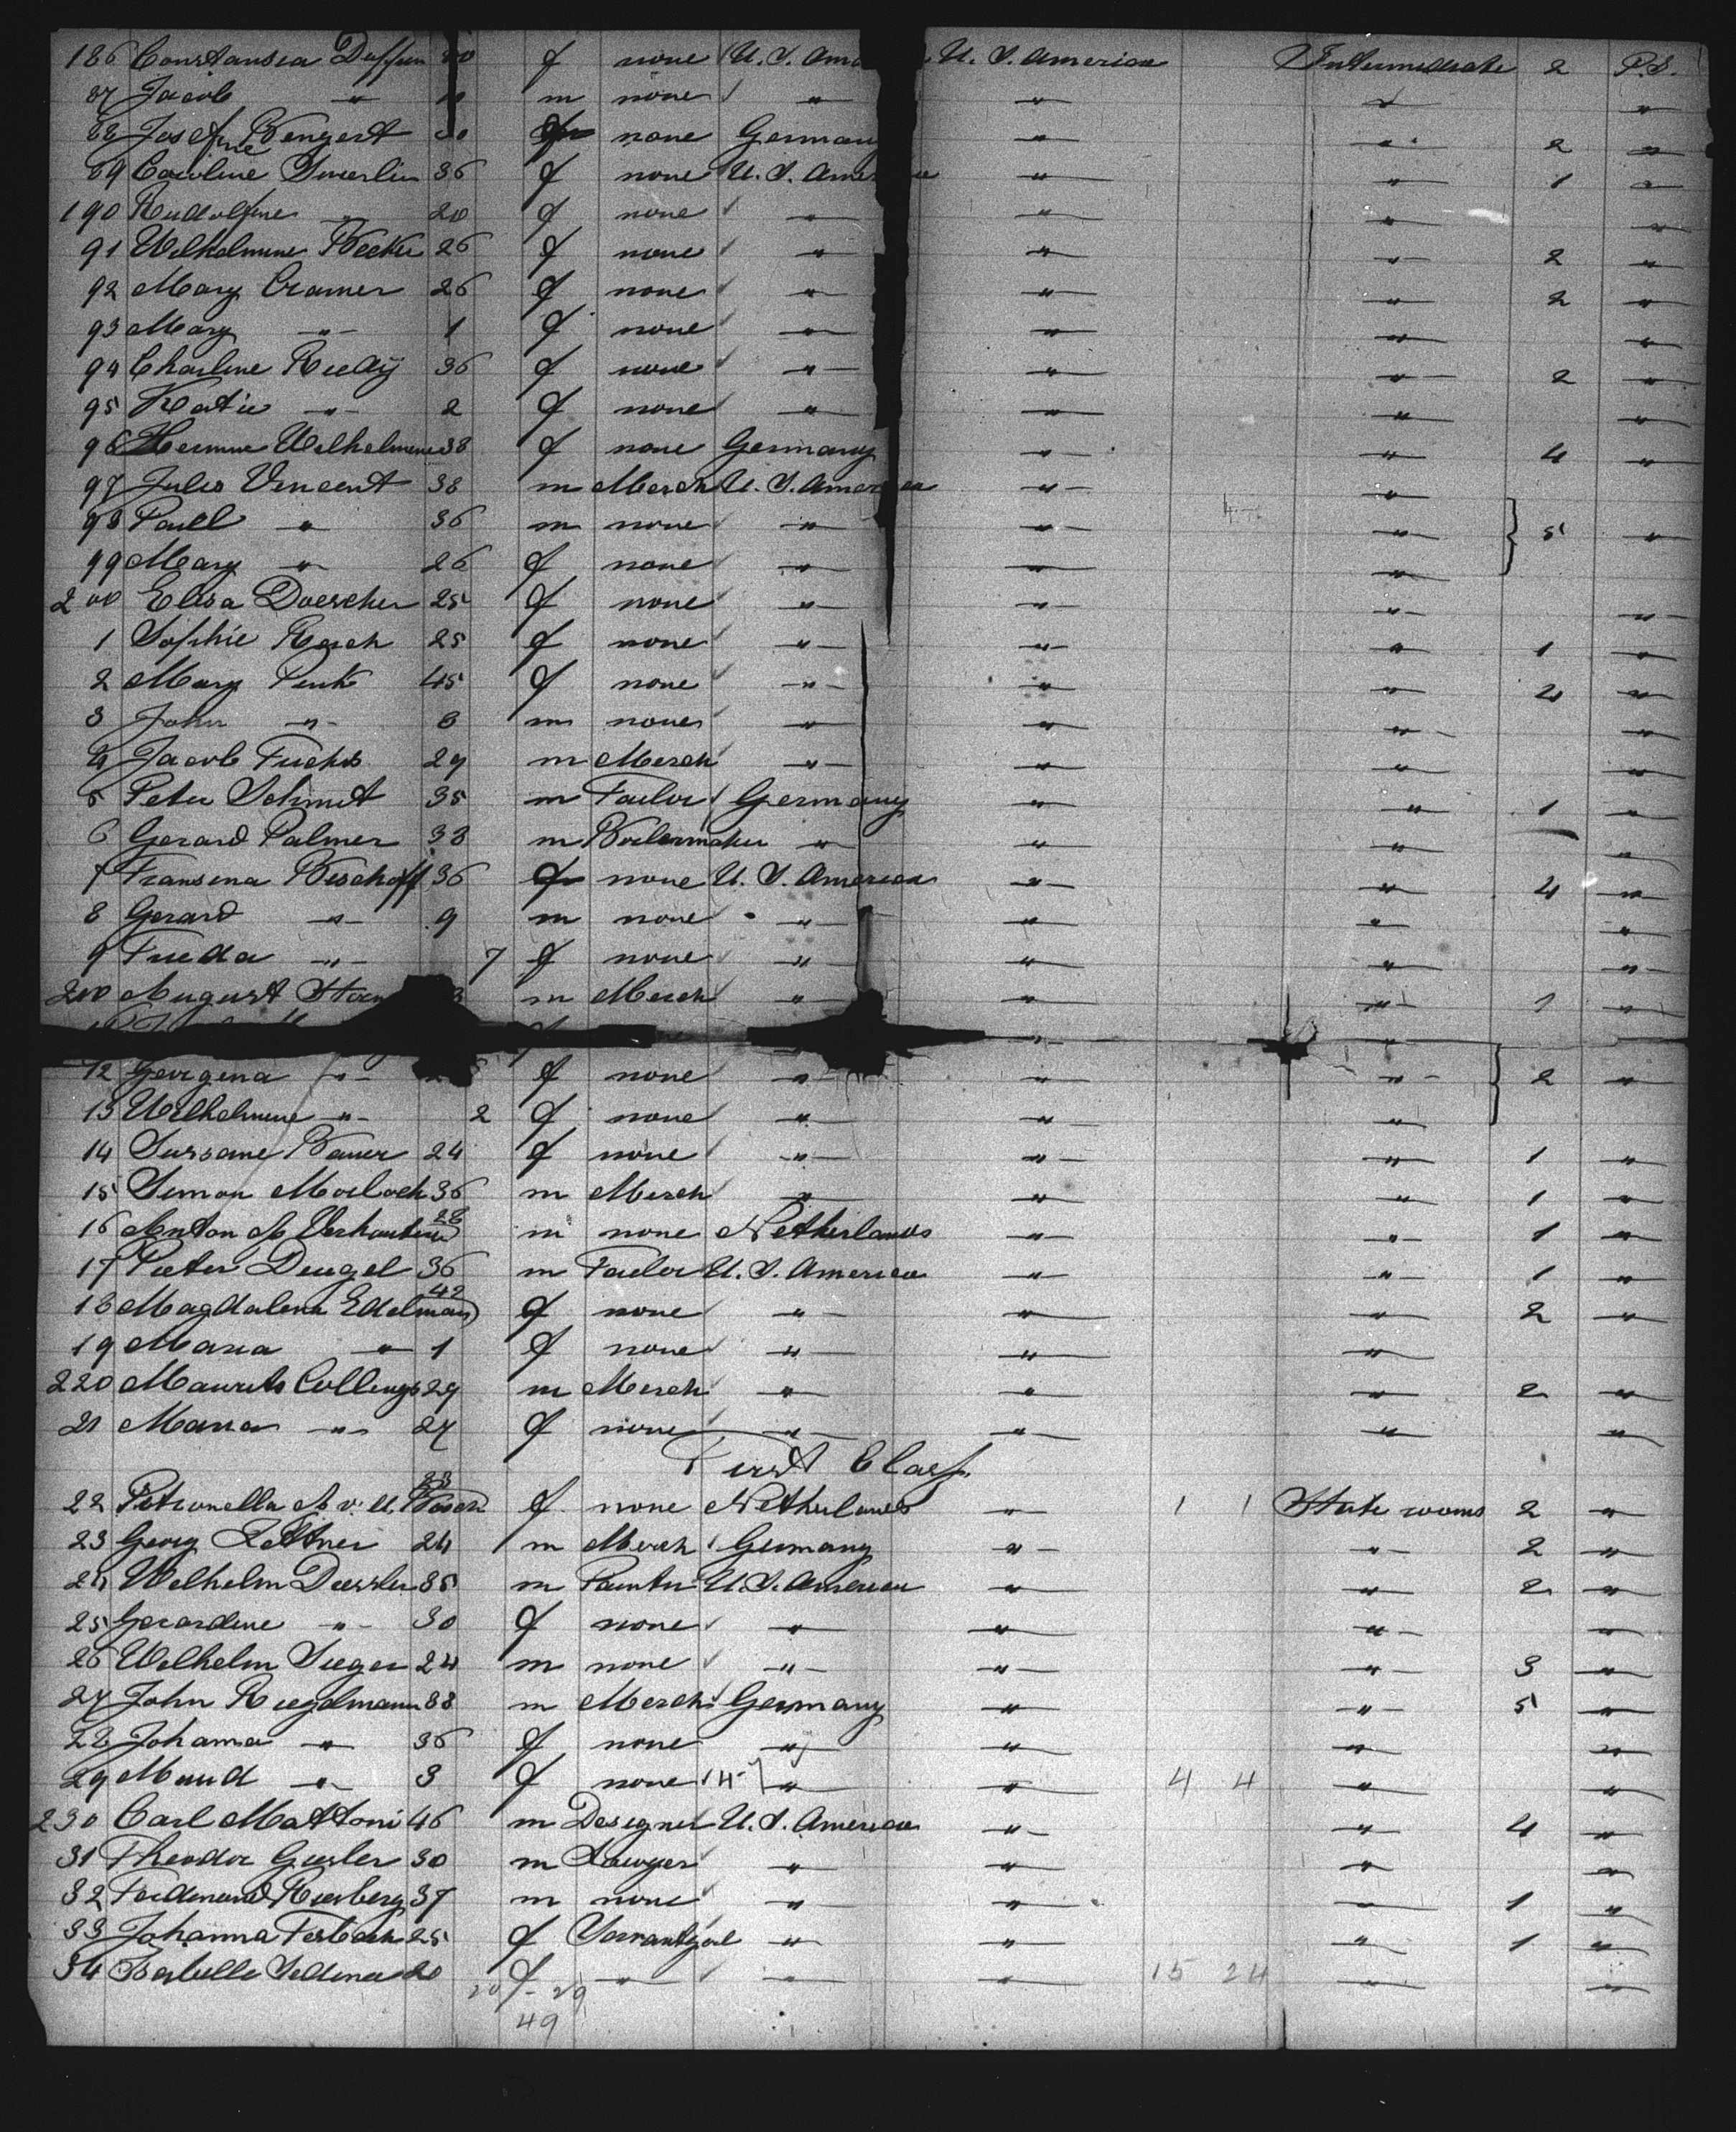 186 Constansia 0 f none U. S. Ame U. S. America Intermediate 2 P.S.
87 Jacob " m none " " " "
88 Josefine Wengert 30 f none Germany " " 2 "
89 Caroline 36 f none U. S. America " " 1 "
190 Rudolfine " 20 f none " " " "
91 Wilhelmine Becker 26 f none " " " 2 "
92 Mary Cramer 26 f none " " " 2 "
93 Mary " 1 f none " " " "
94 Charline Ruedij 36 f none " " " 2 "
95 Katie " 2 f none " " " "
96 Hermine Wilhelmine 38 f none Germany " " 4 "
97 Jules Vincent 38 m Merch U. S. America " "
98 Paull " 36 m none " " " 5 "
99 Mary " 26 f none " " "
200 Elisa Doescher 25 f none " " " "
1 Sophie Resch 25 f none " " " 1 "
2 Mary Penk 45 f none " " " 2 "
3 John " 8 m none " " " "
4 Jacob Fuchs 29 m Merch " " " "
5 Peter Schmit 35 m Tailor Germany " " 1 "
6 Gerard Palmer 38 m Boilermaker " " " "
7 Fransena Bischoff 36 f none U. S. America " " 4 "
8 Gerard " 9 m none " " " "
9 Frieda " 7 f none " " " "
210 August 3 m Merch " " " 1 "
12 Georgena " f none " " " 2 "
13 Wilhelmine " 2 f none " " "
14 Sussane Bauer 24 f none " " " 1 "
15 Simon Morloch 36 m Merch " " " 1 "
16 Anton A Verhouteren 28 m none Netherlands " " 1 "
17 Pieter Deugel 36 m Tailor U. S. America " " 1 "
18 Magdalena Edelman 42 f none " " " 2 "
19 Maria " 1 f none " " "
220 Maurits Collings 29 m Merch " " " 2 "
21 Maria " 27 f none " " " "
First Class
22 Petronella A v. d. Bosch 23 f none Netherlands " 1 1 State rooms 2 "
23 Georg Lettner 24 m Merch Germany " " 2 "
24 Wilhelm Dressler 35 m Painter U. S. America " " 2 "
25 Gerardine " 30 f none " " " "
26 Wilhelm Sieger 24 m none " " " 3 "
27 John Riegelmann 38 m Merch Germany " " 5 "
28 Johanna " 36 f none " " " "
29 Maud " 3 f none 4 " " 4 4 " "
230 Carl Mattoni 46 m Designer U. S. America " " 4 "
31 Theodor Giesler 30 m Lawyer " " " "
32 Ferdinand 37 m none " " " 1 "
33 Johanna 25 f Servantgirl " " " 1 "
34 20 f " " " 15 24 " "
20 / - 29
49